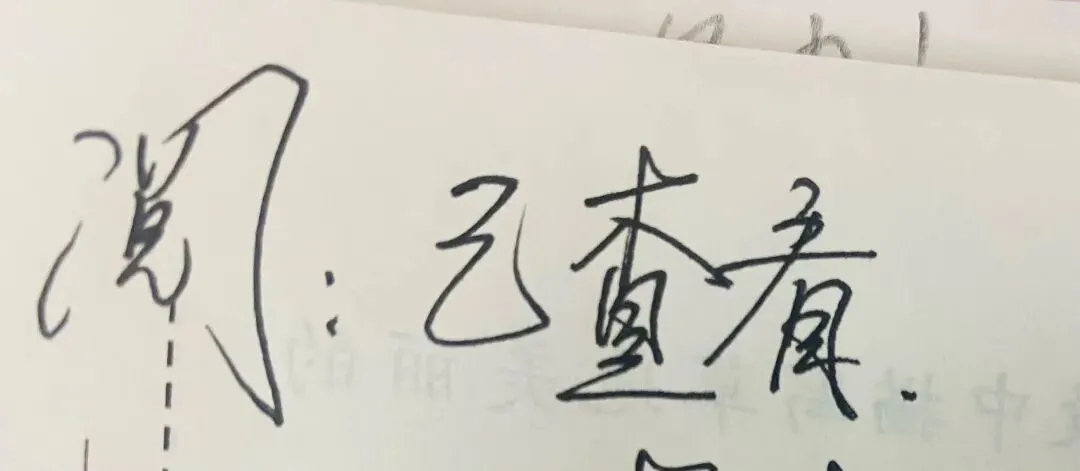 阅：已查看.